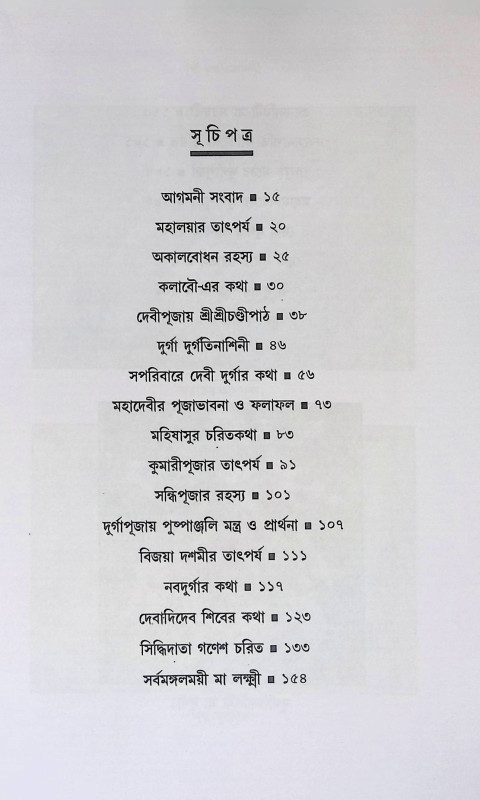 সূচিপত্র
আগমনী সংবাদ ■ ১৫
মহালয়ার তাৎপর্য ■ ২০
অকালবোধন রহস্য ■ ২৫
কলাবৌ-এর কথা ■ ৩০
দেবীপূজায় শ্রীশ্রীচণ্ডীপাঠ ■ ৩৮
দুর্গা দুর্গতিনাশিনী ■ ৪৬
সপরিবারে দেবী দুর্গার কথা ■ ৫৬
মহাদেবীর পূজাভাবনা ও ফলাফল ■ ৭৩
মহিষাসুর চরিতকথা ■ ৮৩
কুমারীপূজার তাৎপর্য ■ ৯১
সন্ধিপূজার রহস্য ■ ১০১
দুর্গাপূজায় পুষ্পাঞ্জলি মন্ত্র ও প্রার্থনা ■ ১০৭
বিজয়া দশমীর তাৎপর্য ■ ১১১
নবদুর্গার কথা ■ ১১৭
দেবাদিদেব শিবের কথা ■ ১২৩
সিদ্ধিদাতা গণেশ চরিত ■ ১৩৩
সর্বমঙ্গলময়ী মা লক্ষ্মী ■ ১৫৪